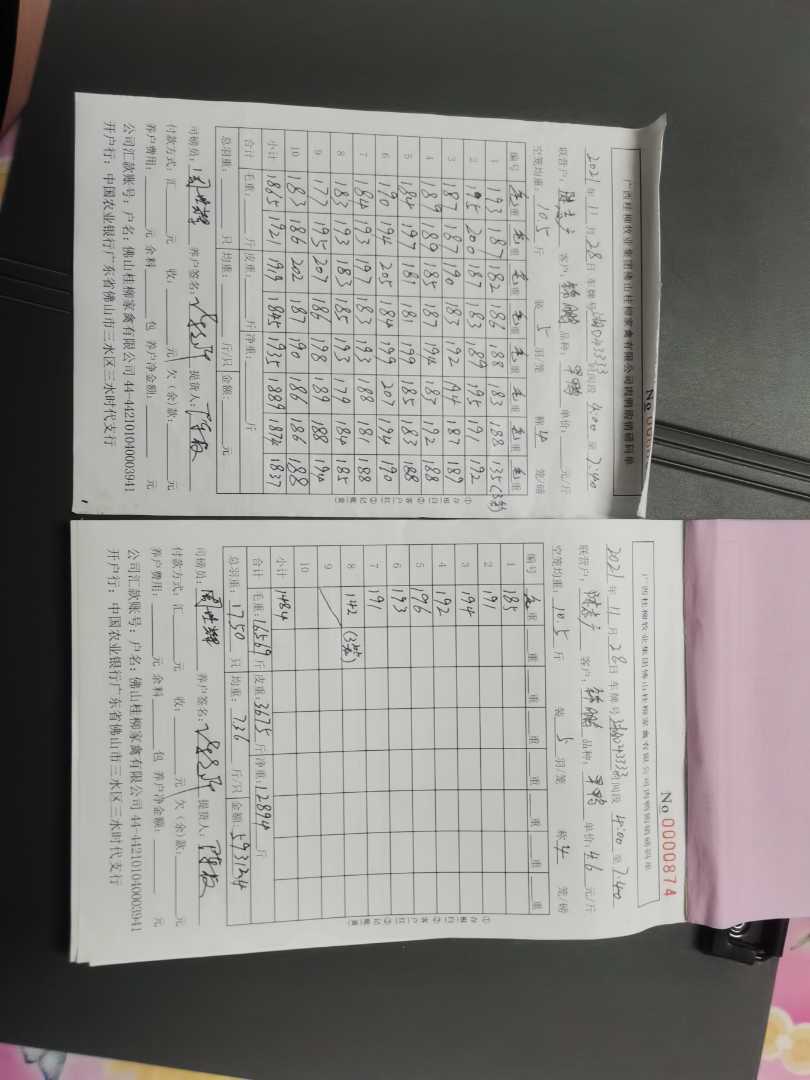 No
广西桂柳牧业集团佛山桂柳家禽有限公司肉鸭购销磅码单
2021 年 11 月 28 日 车牌号 时间段 4:00 至 7:40
联营户: 客户: 品种: 单价: 元/斤
空笼均重: 10.5 斤 装 5 羽/笼 称 4 笼/磅
编号 毛重 毛重 毛重 毛重 毛重 毛重 毛重 毛重
1 193 187 182 186 188 183 188 135(3笼)
2 195 200 187 183 189 195 191 192
3 187 187 190 183 192 194 187 189
4 189 189 185 187 194 187 192 188
5 184 197 181 181 199 185 183 188
6 190 194 205 184 199 207 194 190
7 184 193 197 183 193 188 181 188
8 183 193 183 185 193 179 184 185
9 177 195 207 186 198 189 188 194
10 183 186 202 187 190 186 186 188
小计 1865 1921 1919 1845 1935 1889 1874 1837
合计 毛重: 斤 皮重: 斤 净重: 斤
总羽重: 只 均重: 斤/只 金额: 元
①存根(白) ②客户(红) ③记账(黄)
司磅员: 养户签名: 提货人:
付款方式: 汇 元 收: 元 欠(余)款: 元
养户费用: 元 余料 包 养户净金额: 元
公司汇款账号: 户名: 佛山桂柳家禽有限公司 44-442101040003941
开户行: 中国农业银行广东省佛山市三水区三水时代支行
No 0000874
广西桂柳牧业集团佛山桂柳家禽有限公司肉鸭购销磅码单
2021 年 11 月 28 日 车牌号 时间段 4:00 至 7:40
联营户: 客户: 品种: 单价: 4.6 元/斤
空笼均重: 10.5 斤 装 5 羽/笼 称 4 笼/磅
编号 毛重 重 重 重 重 重 重 重
1 185
2 191
3 194
4 192
5 196
6 193
7 191
8 142 (3笼)
9
10
小计 1484
合计 毛重: 16569 斤 皮重: 3675 斤 净重: 12894 斤
总羽重: 1750 只 均重: 7.36 斤/只 金额: 59312.4 元
①存根(白) ②客户(红) ③记账(黄)
司磅员: 养户签名: 提货人:
付款方式: 汇 元 收: 元 欠(余)款: 元
养户费用: 元 余料 包 养户净金额: 元
公司汇款账号: 户名: 佛山桂柳家禽有限公司 44-442101040003941
开户行: 中国农业银行广东省佛山市三水区三水时代支行